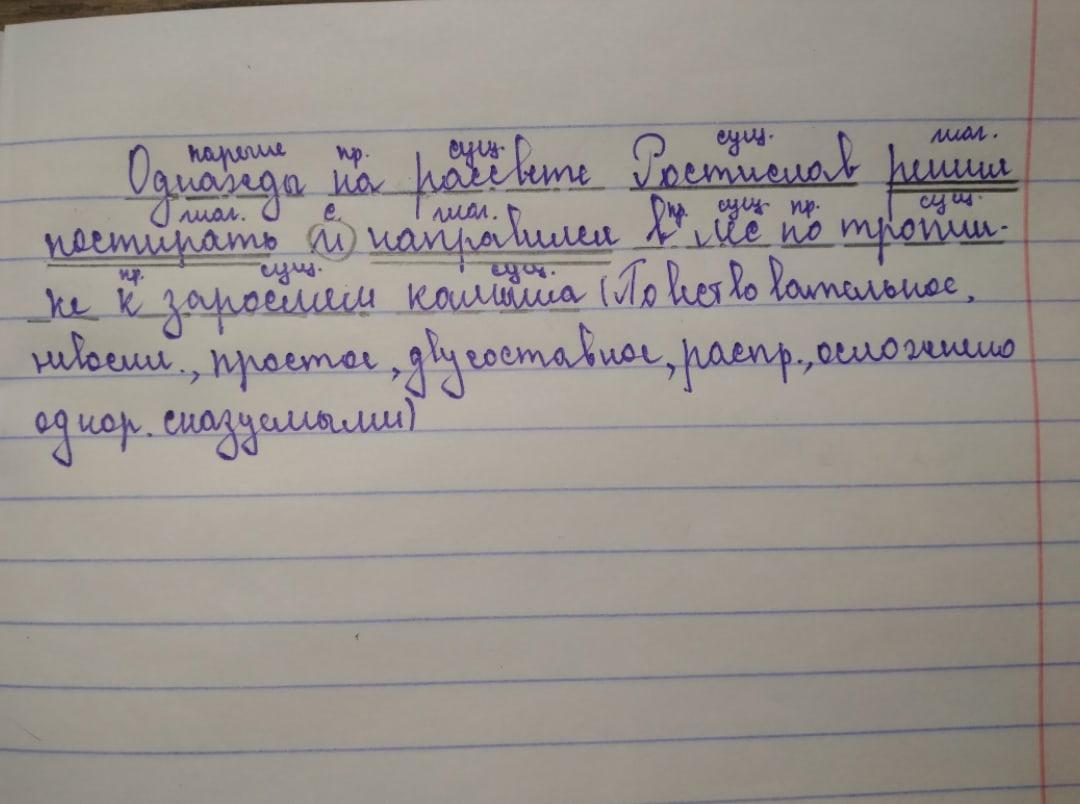 наречие пр. сущ. сущ. глаг.
Однажды на рассвете Ростислав решил
глаг. с. глаг. пр. сущ. пр. сущ.
постирать и направился в лес по тропин-
пр. сущ. сущ.
ке к зарослям камыша (Повествовательное,
невоскл., простое, двусоставное, распр., осложнено
однор. сказуемыми)